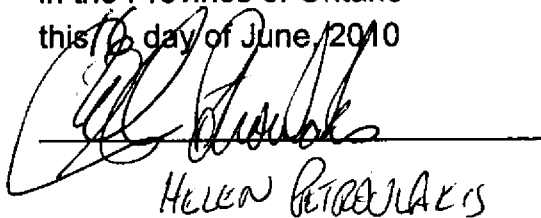 in the Province of Ontario
this 16 day of June, 2010
HELEN PETROULAKIS